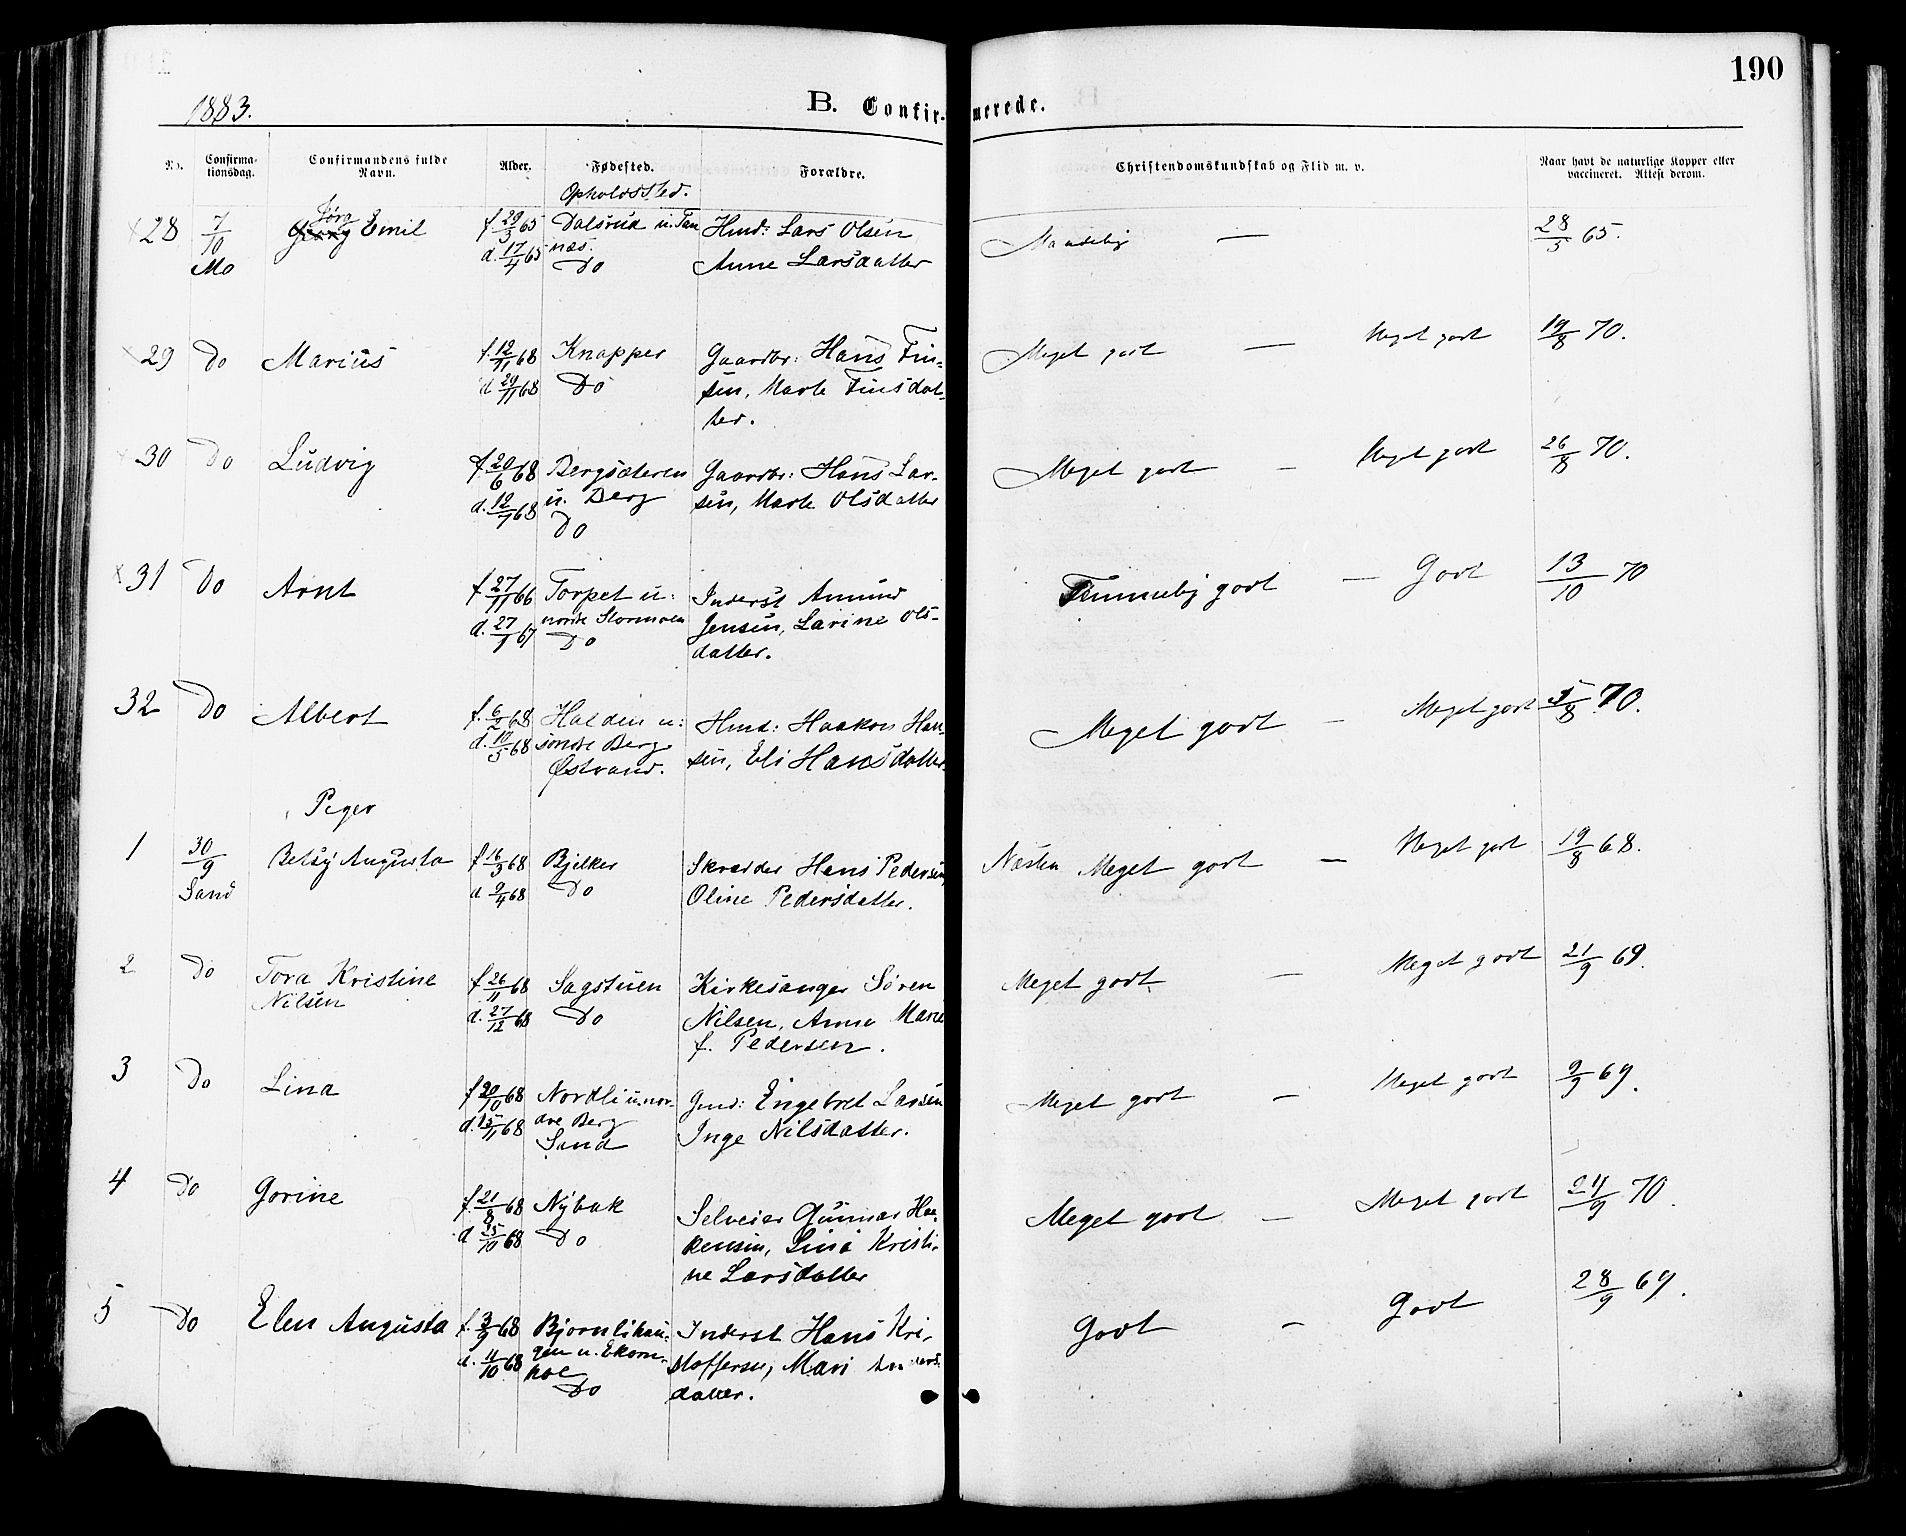 190
1883.
B. Confirmerede.
No. Confirmationsdag. Confirmandens fulde Navn. Alder. Fødested. Forældre. Christendomskundskab og Flid m. v. Naar havt de naturlige Kopper eller vaccineret. Attest derom.
Opholdssted.
28 7/10 Mo Jørg Emil f. 29/3 65 Dalsrud u. Tannæs. Hmd: Lars Olsen Maadelig — 28/5 65.
d. 17/4 65 Do Anne Larsdatter
29 Do Marius f. 12/11 68 Knapper Gaardbr: Hans Fin- Meget godt — Meget godt 19/8 70.
d. 29/11 68 Do sen, Marte Finsdat-
ter.
30 Do Ludvig f. 20/6 68 Bergsæteren Gaardbr: Hans Lar- Meget godt — Meget godt 26/8 70.
d. 12/7 68 u. Berg sen, Marte Olsdatter
Do
31 Do Arnt f. 27/11 66 Torpet u: Inderst Amund Temmelig godt — Godt 13/10 70
d. 27/1 67 nordre Stormoen Jensen, Larine Ols-
Do datter.
32 Do Albert f. 6/2 68 Halden u: Hmd: Haakon Han- Meget godt — Meget godt 5/8 70.
d. 10/5 68 søndre Berg sen, Eli Hansdatter
Østvand.
Piger
1 30/9 Sand Betsy Augusta f. 16/3 68 Bjelker Skræder Hans Pedersen, Næsten Meget godt — Meget godt 19/8 68.
d. 9/4 68 Do Oline Pedersdatter.
2 Do Tora Kristine f. 26/11 68 Sagstuen Kirkesanger Søren Meget godt — Meget godt 21/9 69.
Nilsen d. 27/12 68 Do Nilsen, Anne Marie
f. Pedersen.
3 Do Lina f. 20/10 68 Nordli u. nor- Gmd: Engebret Larsen Meget godt — Meget godt 9/9 69.
d. 15/11 68 dre Berg Inge Nilsdatter.
Sand
4 Do Gorine f. 21/8 68 Nybak Selveier Gunnar Haa- Meget godt — Meget godt 24/9 70.
d. 25/10 68 Do kensen, Lina Kristi-
ne Larsdatter
5 Do Elen Augusta f. 3/9 68 Bjørnlihau- Inderst Hans Kri- Godt — Godt 28/9 69.
d. 11/10 68 gen u. Ekorn- stoffersen, Mari
hol datter.
Do